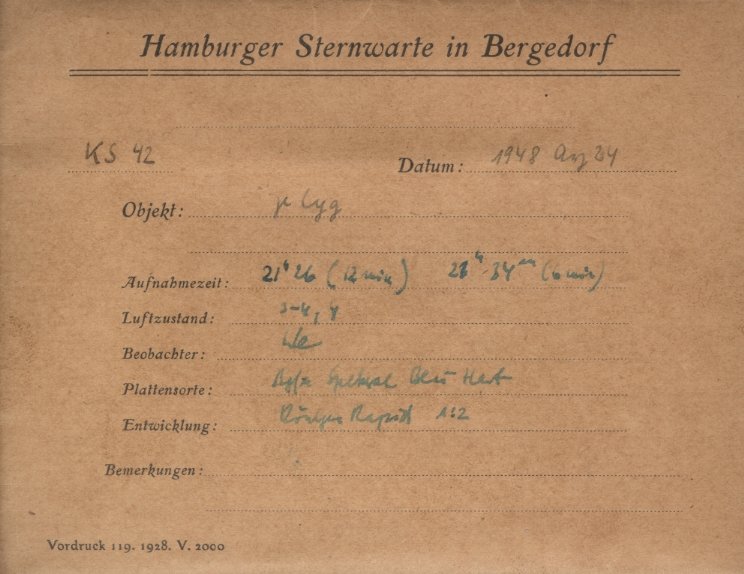 Hamburger Sternwarte in Bergedorf
KS 42 Datum: 1948 Aug 24
Objekt: Cyg
Aufnahmezeit: 21h 26 (12 min) 34m (6 min)
Luftzustand: 3-4, 4
Beobachter: We
Plattensorte: Agfa Spektral Blau Hart
Entwicklung: Rapid 1:2
Bemerkungen:
Vordruck 119. 1928. V. 2000